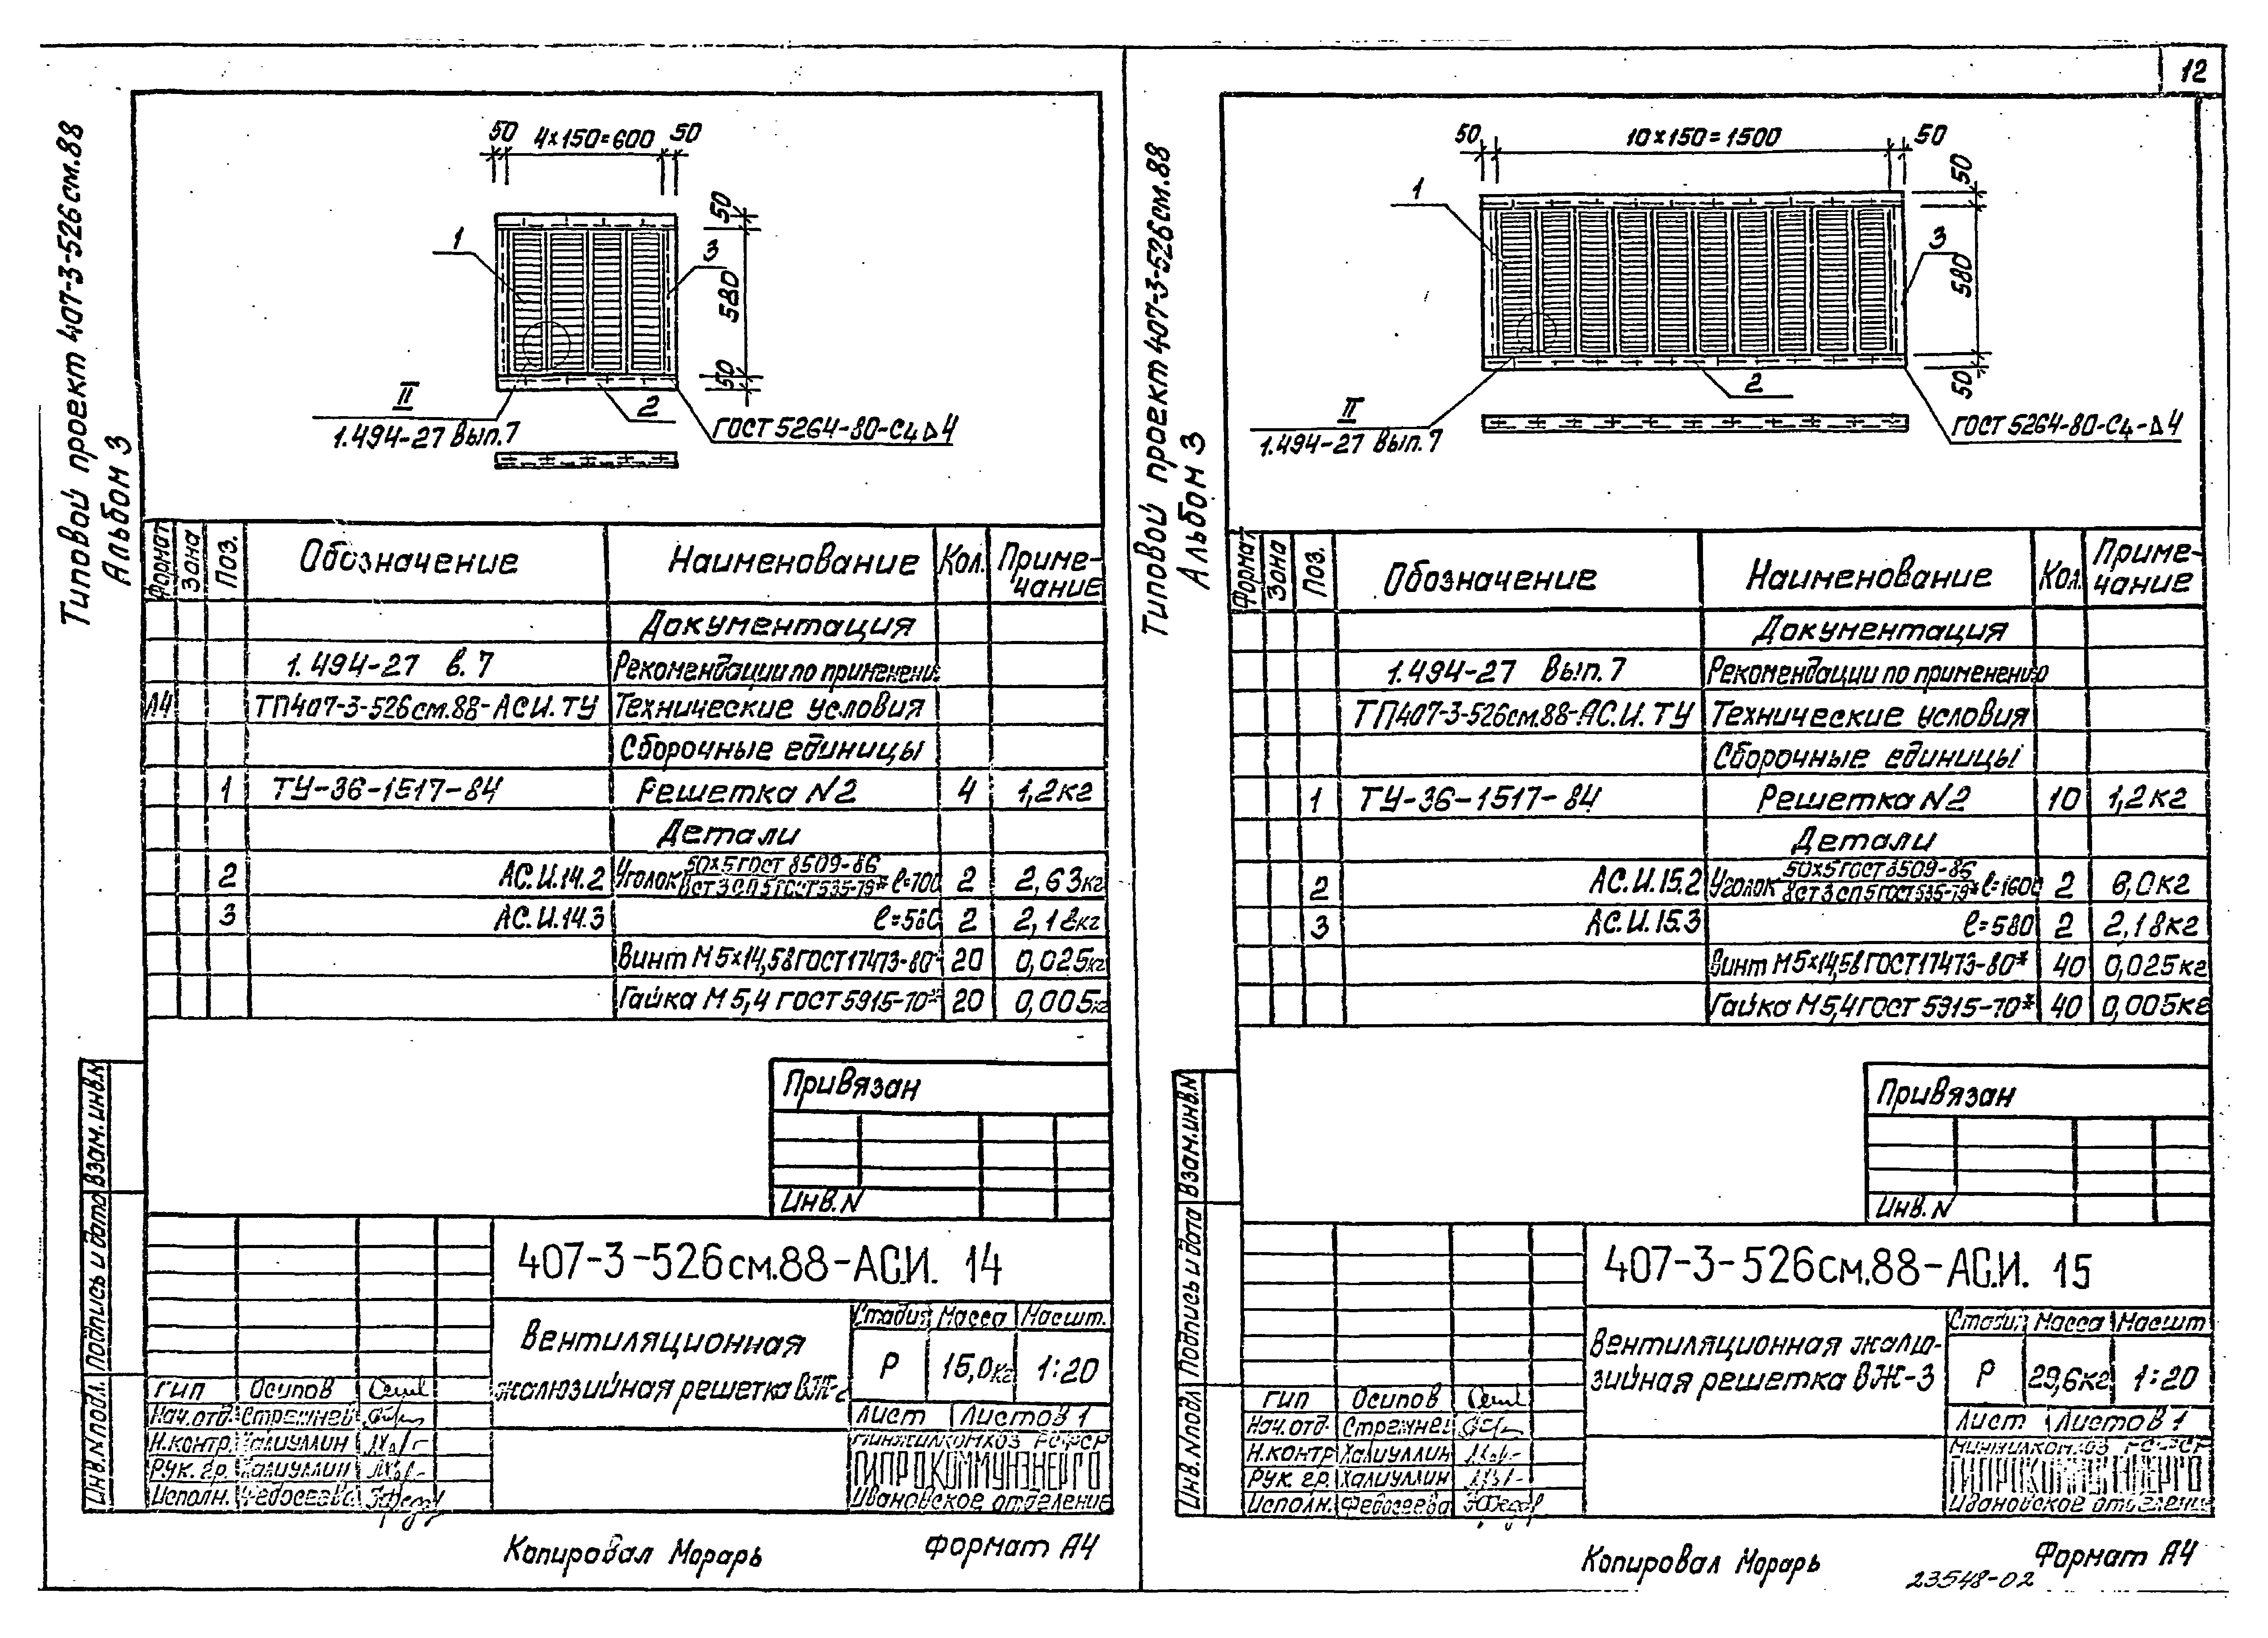 12
Типовой проект 407-3-526см.88
Альбом 3
50 4×150=600 50
50
580
50
1
3
2
II
1.494-27 Вып.7
ГОСТ 5264-80-С4 Δ4
Формат Зона Поз. Обозначение Наименование Кол. Приме-
чание
Документация
1.494-27 в.7 Рекомендации по применени
А4 ТП407-3-526см.88-АС.И.ТУ Технические условия
Сборочные единицы
1 ТУ-36-1517-84 Решетка N2 4 1,2кг
Детали
2 АС.И.14.2 Уголок 50×5 ГОСТ 8509-86 / ВСТ3СП5 ГОСТ 535-79* ℓ=700 2 2,63кг
3 АС.И.14.3 ℓ=580 2 2,18кг
Винт М5×14,58 ГОСТ 17473-80* 20 0,025кг
Гайка М5,4 ГОСТ 5915-70* 20 0,005кг
Привязан
Инв.N
Взам.инв.N
Подпись и дата
Инв.N подл.
407-3-526см.88-АС.И. 14
Вентиляционная
жалюзийная решетка ВЖ-2
Стадия Масса Масшт.
Р 15,0кг 1:20
Лист Листов 1
Минжилкомхоз РСФСР
ГИПРОКОММУНЭНЕРГО
Ивановское отделение
ГИП Осипов
Нач.отд. Стрежнев
Н.контр. Халиуллин
Рук. гр. Халиуллин
Исполн. Федосеева
Копировал Морарь Формат А4
Типовой проект 407-3-526см.88
Альбом 3
50 10×150=1500 50
50
580
50
1
3
2
II
1.494-27 Вып.7
ГОСТ 5264-80-С4-Δ4
Формат Зона Поз. Обозначение Наименование Кол. Приме-
чание
Документация
1.494-27 Вып.7 Рекомендации по применению
ТП407-3-526см.88-АС.И.ТУ Технические условия
Сборочные единицы
1 ТУ-36-1517-84 Решетка N2 10 1,2кг
Детали
2 АС.И.15.2 Уголок 50×5 ГОСТ 8509-86 / ВСТ3СП5 ГОСТ 535-79* ℓ=1600 2 6,0кг
3 АС.И.15.3 ℓ=580 2 2,18кг
Винт М5×14,58 ГОСТ 17473-80* 40 0,025кг
Гайка М5,4 ГОСТ 5915-70* 40 0,005кг
Привязан
Инв.N
Взам.инв.N
Подпись и дата
Инв.N подл.
407-3-526см.88-АС.И. 15
Вентиляционная жалю-
зийная решетка ВЖ-3
Стадия Масса Масшт
Р 29,6кг 1:20
Лист Листов 1
Минжилкомхоз РСФСР
ГИПРОКОММУНЭНЕРГО
Ивановское отделение
ГИП Осипов
Нач.отд. Стрежнев
Н.контр Халиуллин
Рук. гр. Халиуллин
Исполн. Федосеева
Копировал Морарь Формат А4
23548-02